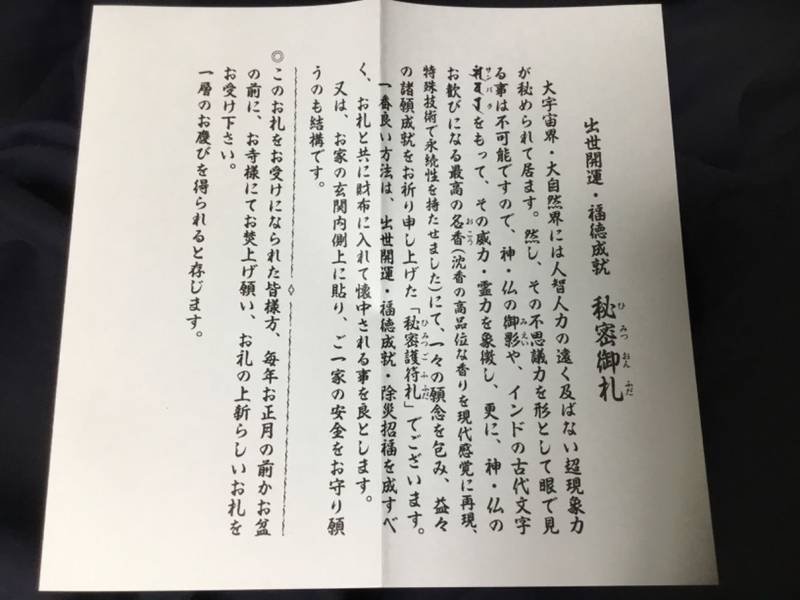 出世開運・福徳成就 秘密御札
ひみつおんふだ
大宇宙界・大自然界には人智人力の遠く及ばない超現象力
が秘められて居ます。然し、その不思議力を形として眼で見
る事は不可能ですので、神・仏の御影や、インドの古代文字
みえい
サンバラ
をもって、その威力・霊力を象徴し、更に、神・仏の
お歓びになる最高の名香(沈香の高品位な香りを現代感覚に再現、
おこう
特殊技術で永続性を持たせました)にて、一々の願念を包み、益々
の諸願成就をお祈り申し上げた「秘密護符札」でございます。
ひみつごふふだ
一番良い方法は、出世開運・福徳成就・除災招福を成すべ
く、お札と共に財布に入れて懐中される事を良とします。
又は、お家の玄関内側上に貼り、ご一家の安全をお守り願
うのも結構です。
◎このお札をお受けになられた皆様方、毎年お正月の前かお盆
の前に、お寺様にてお焚上げ願い、お札の上新らしいお札を
お受け下さい。
一層のお慶びを得られると存じます。